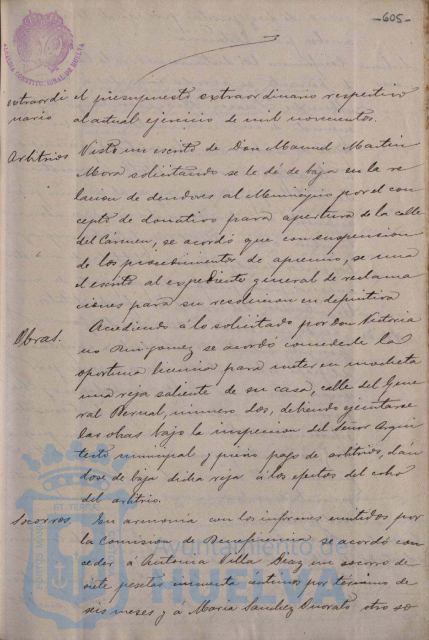 -605-
ALCALDIA CONSTITUCIONAL DE HUELVA
extraordi el presupuesto extraordinario respectivo
nario al actual ejercicio de mil novecientos.
Arbitrios Visto un escrito de Don Manuel Martin
Mora solicitando se le dé de baja en la re
lacion de deudores al Municipio por el con
cepto de donativo para apertura de la calle
del Cármen, se acordó que con suspension
de los procedimientos de apremio, se una
el escrito al expediente general de reclama
ciones para su resolucion en definitiva
Obras. Accediendo á lo solicitado por Don Victoria
no se acordó concederle la
oportuna licencia para meter en mocheta
una reja saliente de su casa, calle del Gene
ral Bernal, número dos, debiendo ejecutarse
las obras bajo la inspeccion del Señor Arqui
tecto municipal y previo pago de arbitrios, dán
dose de baja dicha reja á los efectos del cobro
del arbitrio.
Socorros. En armonia con los informes emitidos por
la Comision de Beneficencia se acordó con
ceder á Antonia Villa Diaz un socorro de
siete pesetas cincuenta céntimos por término de
seis meses y á Maria Sanchez otro so
Ayuntamiento de
HUELVA